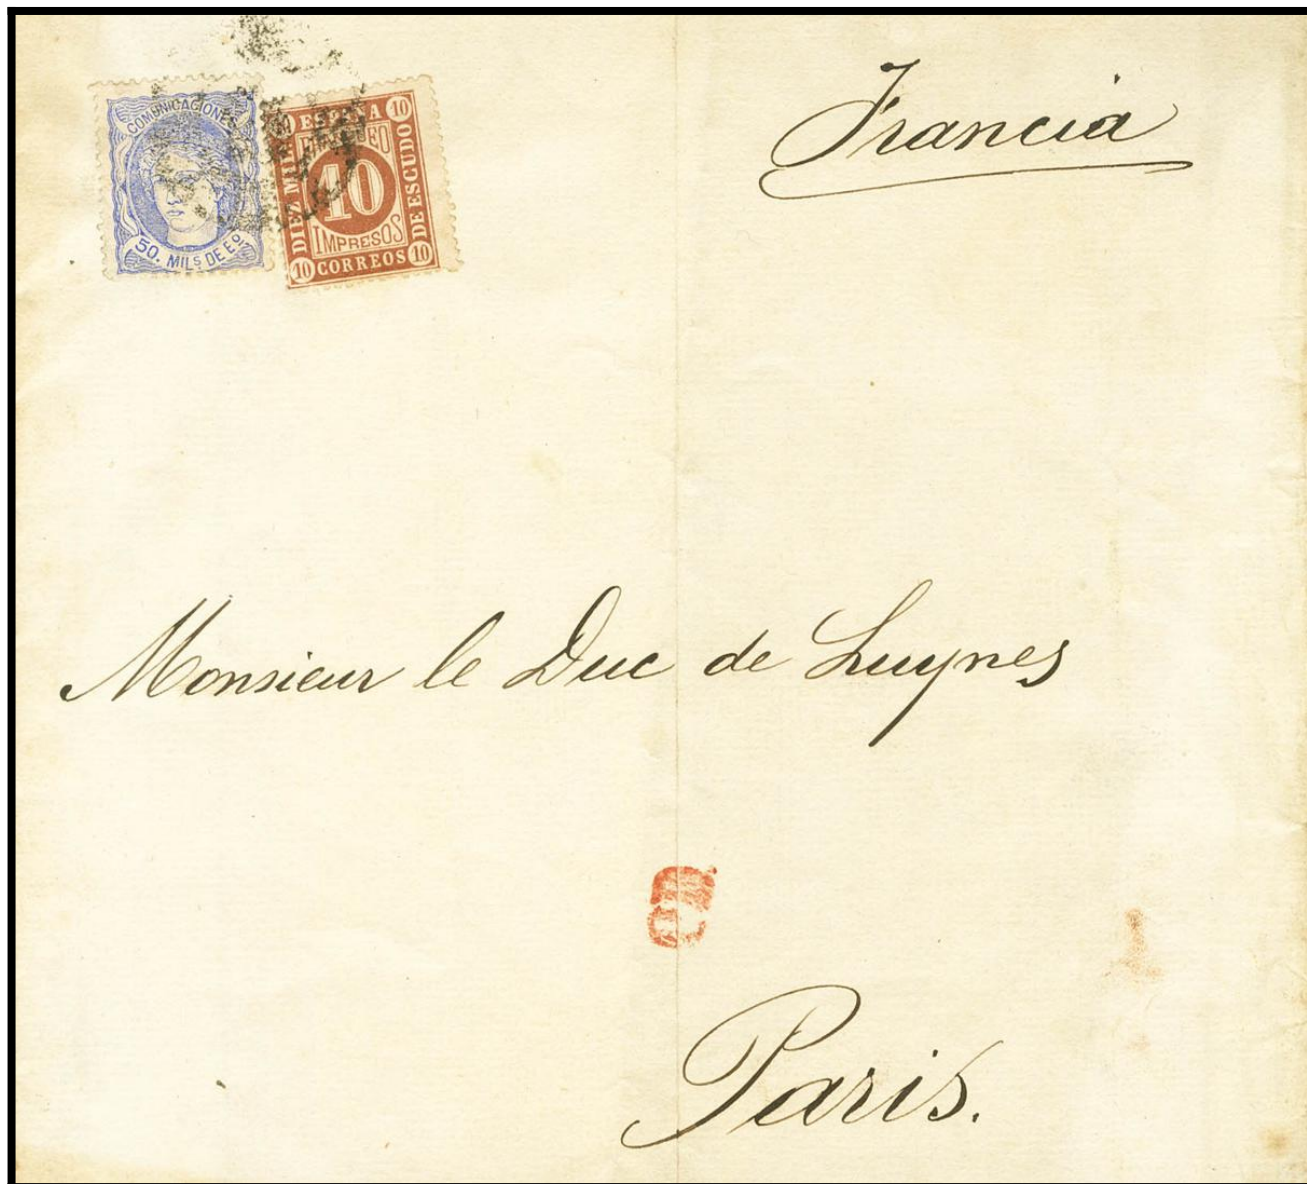 Francia
COMUNICACIONES
50. MILS DE Eº
ESPAÑA
10
DIEZ MIL
10
IMPRESOS
DE ESCUDO
10
CORREOS
10
Monsieur le Duc de Luynes
Paris.